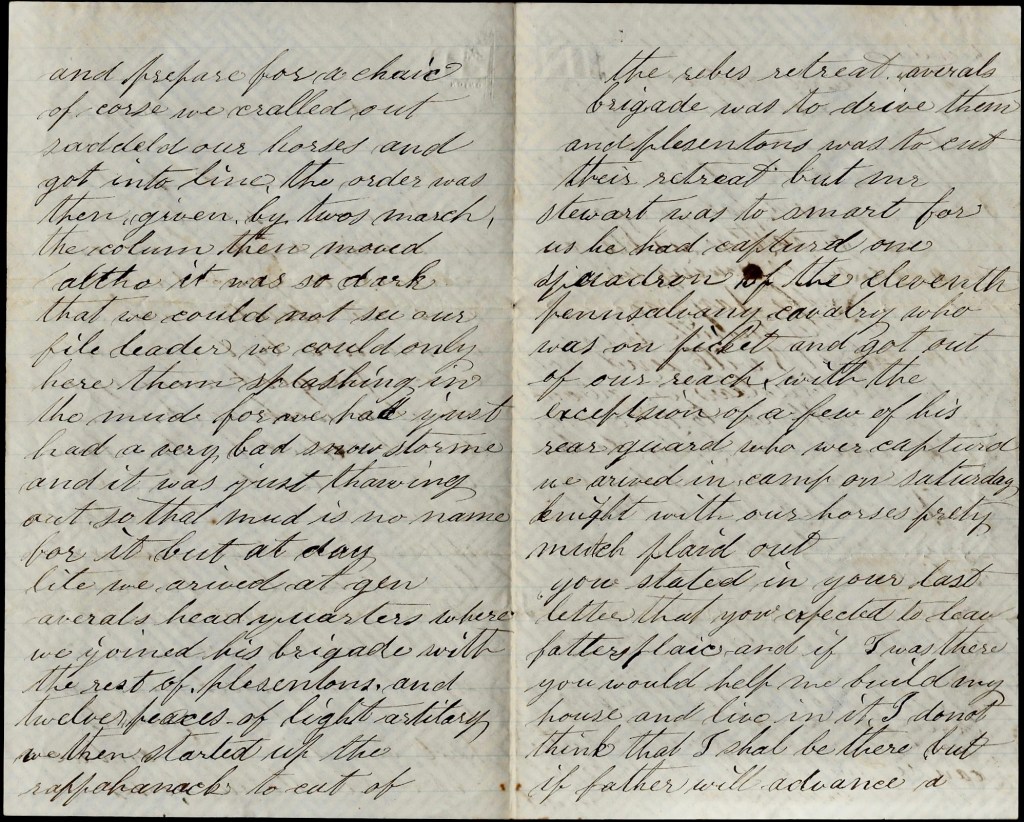 and prepare for a chaic
of corse we cralled out
saddeld our horses and
got into line, the order was
then given. by twos march,
the colum then moved
altho it was so dark
that we could not see our
file leader we could only
here them splashing in
the mud for we had just
had a very bad snow storme
and it was just thawing
out. so that mud is no name
for it but at day
lite we arived at gen
averals head quarters where
we joined his brigade with
the rest of plesentons. and
twelve peaces of light artilary
we then started up the
rappahanack to cut of
the rebes retreat. averals
brigade was to drive them
and plesentons was to cut
their retreat but mr
stewart was to smart for
us he had capturd one
squadron of the eleventh
pennsalvany cavalry who
was on picket and got out
of our reach with the
exceptsion of a few of his
rear guard who wer capturd
we arived in camp on saturday
knight with our horses prety
mutch plaid out
you stated in your last
letter that you expected to leav
fathers plaic and if I was there
you would help me build my
house and live in it, I do not
think that I shal be there but
if father will advance a